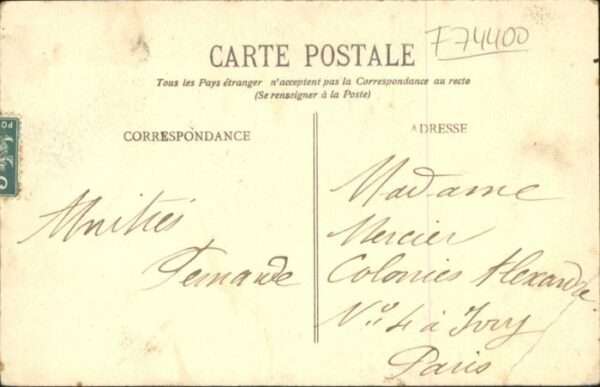 F74400
CARTE POSTALE
Tous les Pays étranger n'acceptent pas la Correspondance au recto
(Se renseigner à la Poste)
CORRESPONDANCE
ADRESSE
Amitiés
Fernande
Madame
Mercier
Colonies Alexandre
No 4 à Ivry
Paris